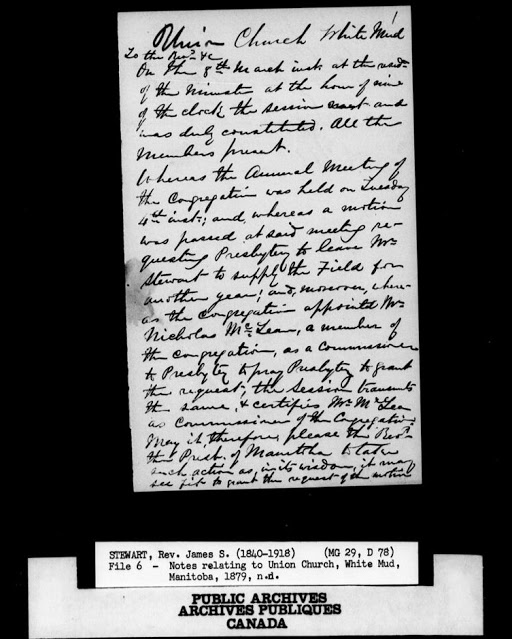 1
Union Church White Mud
To the Revd. &c
On the 8th March inst. at the resid-
of the Minister at the hour of nine
of the clock the session met and
was duly constituted. All the
members present.
Whereas the Annual Meeting of
the Congregation was held on Tuesday
4th inst; and, whereas a motion
was passed at said meeting re-
questing Presbytery to leave Mr
Stewart to supply the Field for
another year; and, moreover, where-
as the Congregation appoints Mr
Nicholas McLean, a member of
the congregation, as a Commissioner
to Presbytery to pray Presbytery to grant
the request, the Session transmits
the same, & certifies Mr. McLean
as Commissioner of the Congregation.
May it, therefore, please the Revd.
the Presb. of Manitoba to take
such action as, in its wisdom, it may
see fit to grant the request of the motion
STEWART, Rev. James S. (1840-1918) (MG 29, D 78)
File 6 - Notes relating to Union Church, White Mud,
Manitoba, 1879, n.d.
PUBLIC ARCHIVES
ARCHIVES PUBLIQUES
CANADA